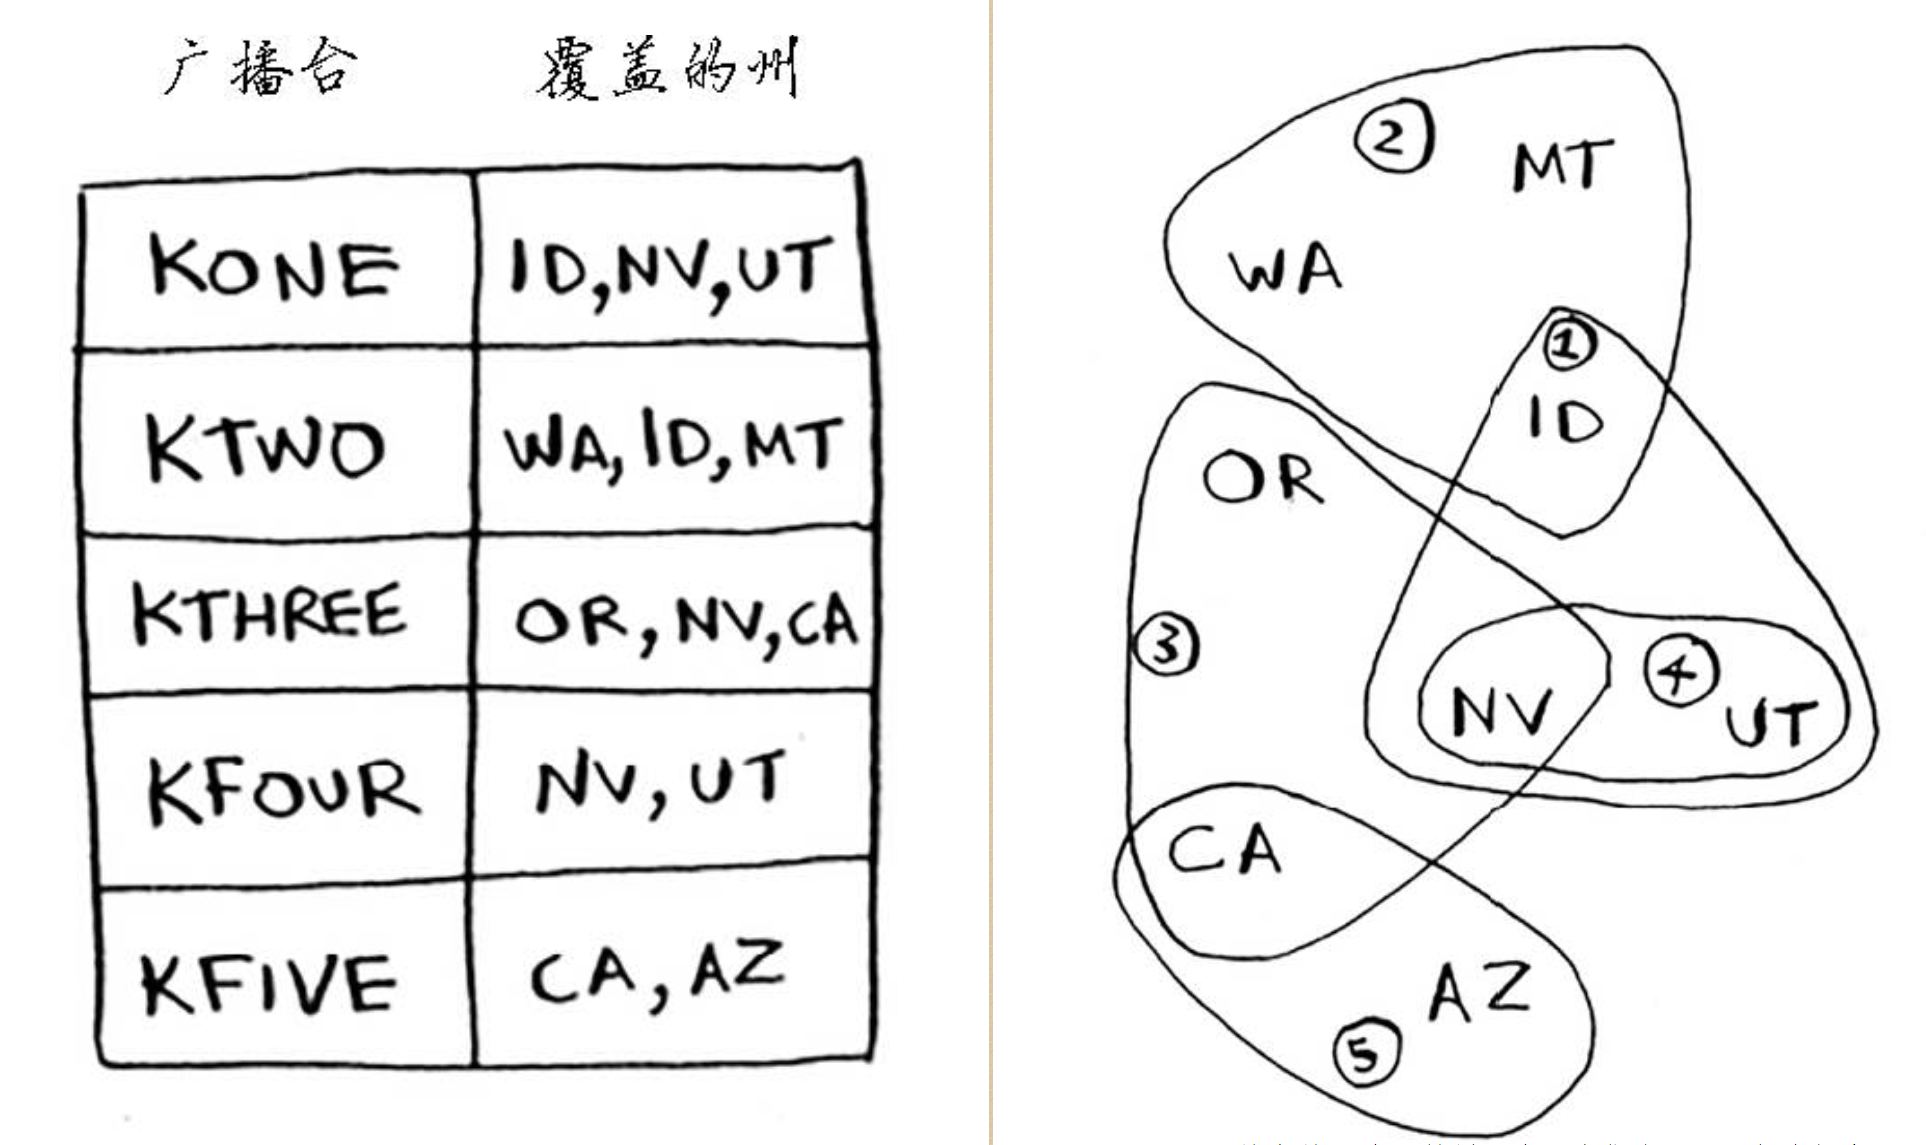 广播台 覆盖的州
KONE ID,NV,UT
KTWO WA,ID,MT
KTHREE OR,NV,CA
KFOUR NV,UT
KFIVE CA,AZ
2 MT
WA
1
ID
OR
3
4
NV UT
CA
AZ
5